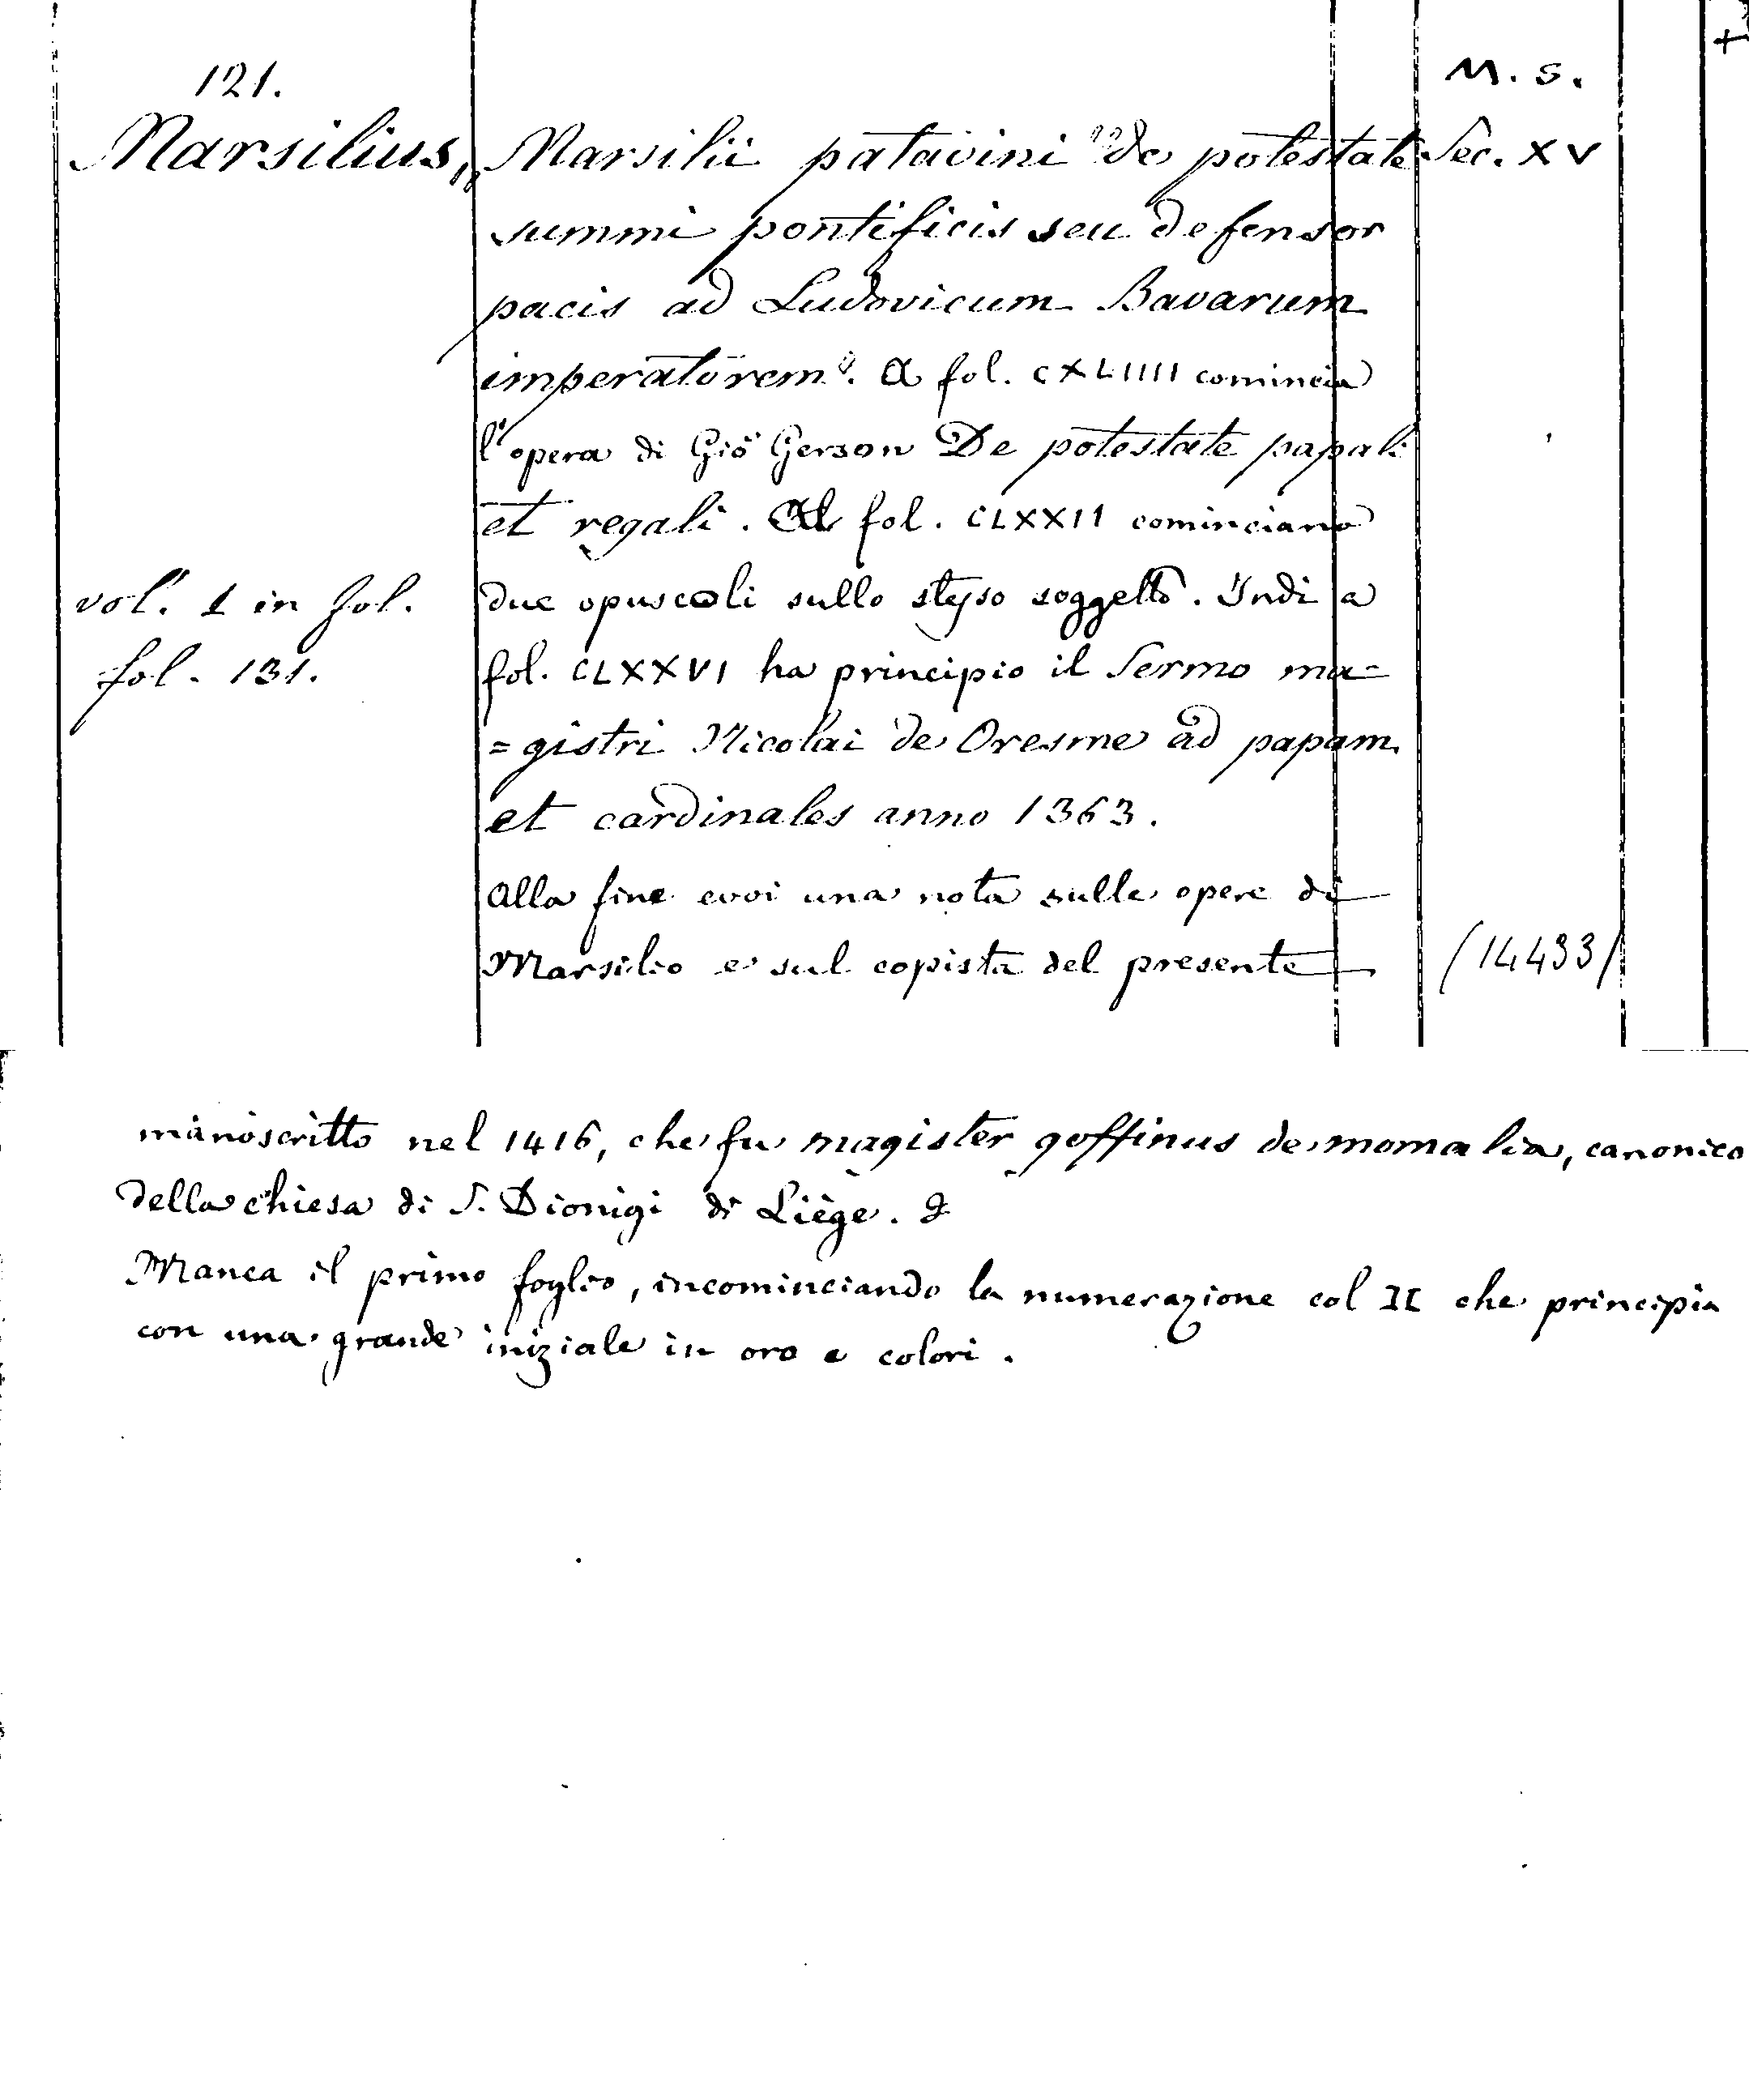 121.
M. S.
Marsilius,
„Marsilii patavini "de potestate
Sec. XV
summi pontificis seu defensor
pacis ad Ludovicum Bavarum
imperatorem". A fol. CXLIIII comincia
l'opera di Gio Gerson De potestate papali
et regali. Al fol. CLXXII cominciano
due opuscoli sullo stesso soggetto. Indi a
vol. 1 in fol.
fol. CLXXVI ha principio il Sermo ma=
fol. 131.
=gistri Nicolai de Oresme ad papam
et cardinales anno 1363.
Alla fine evvi una nota sulle opere di
Marsilio e sul copista del presente
(14433)
manoscritto nel 1416, che fu magister goffinus de momalia, canonico
della chiesa di S. Dionigi di Liège.
Manca il primo foglio, incominciando la numerazione col II che principia
con una grande iniziale in oro e colori.